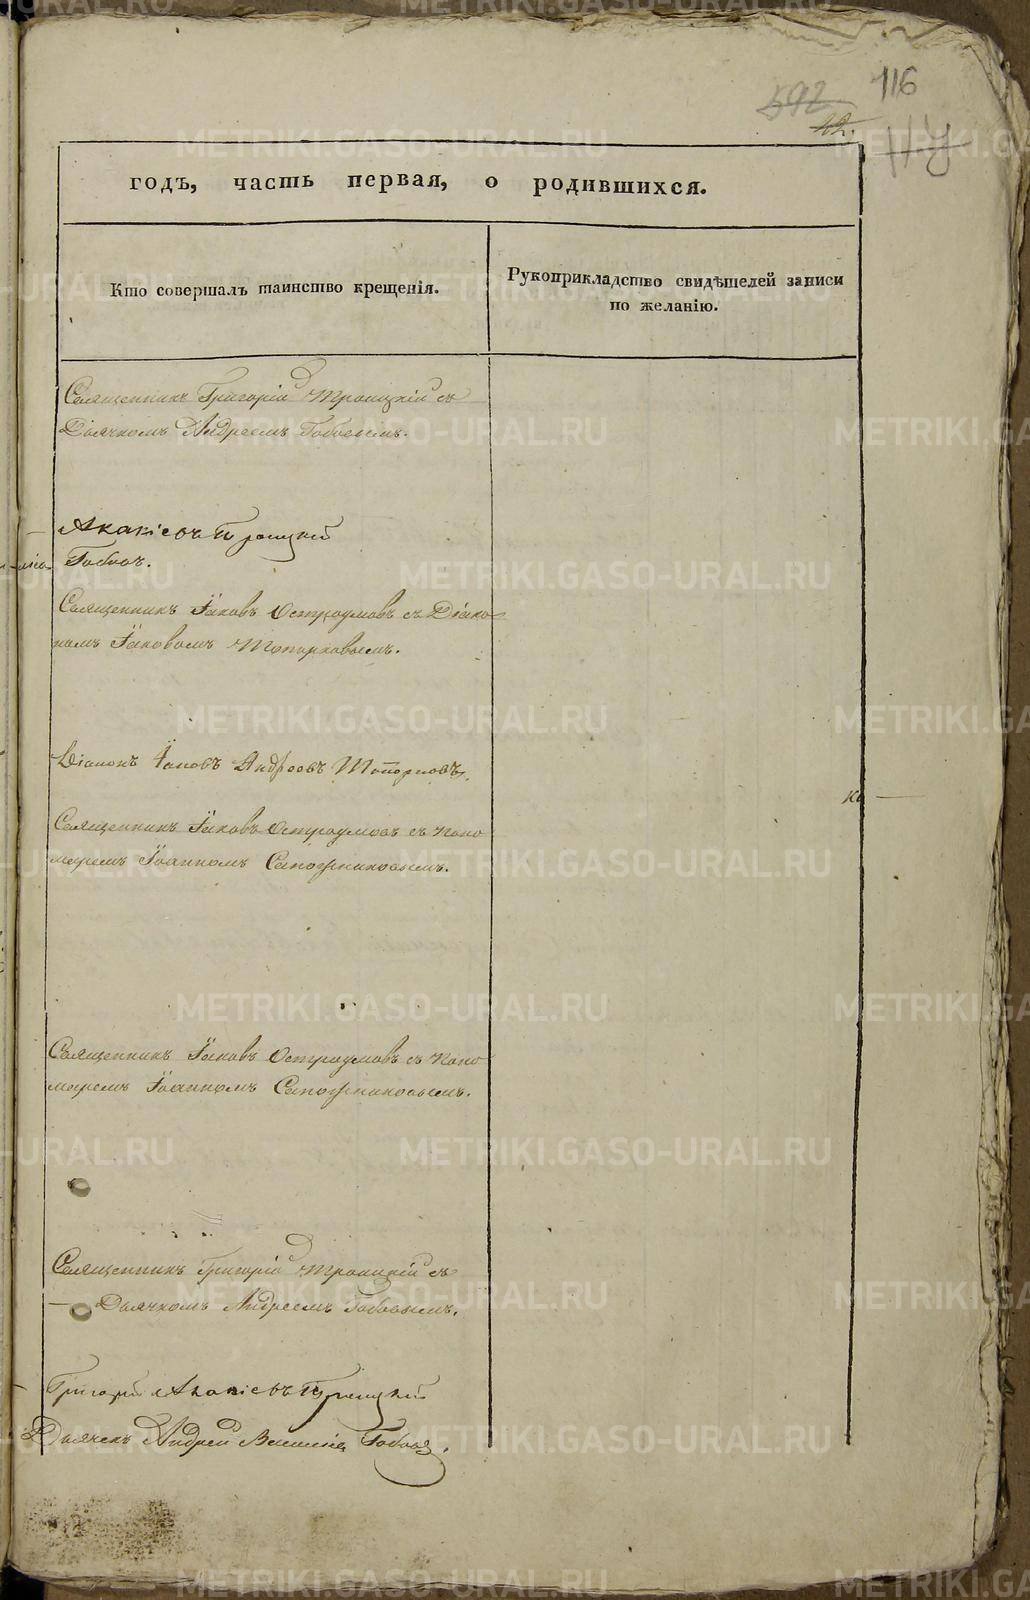 592
116
42.
114
годъ, часть первая, о родившихся.
Кто совершалъ таинство крещенія.
Рукоприкладство свидѣтелей записи
по желанію.
Священникъ Григорій Троицкій съ
Дьячкомъ Андреемъ Бобовымъ.
Акакіевъ Троицкій
Священникъ Іаковъ Остроумовъ съ Діако-
номъ Іаковомъ Топорковымъ.
Діаконъ Іаковъ Андреевъ Топорковъ.
Священникъ Іаковъ Остроумовъ съ Поно
маремъ Іоанномъ Сапожниковымъ.
Священникъ Іаковъ Остроумовъ съ Поно
маремъ Іоанномъ Сапожниковымъ.
Священникъ Григорій Троицкій съ
Дьячкомъ Андреемъ Бобовымъ.
Григорій Акакіевъ Троицкій
Дьячекъ Андрей
METRIKI.GASO-URAL.RU